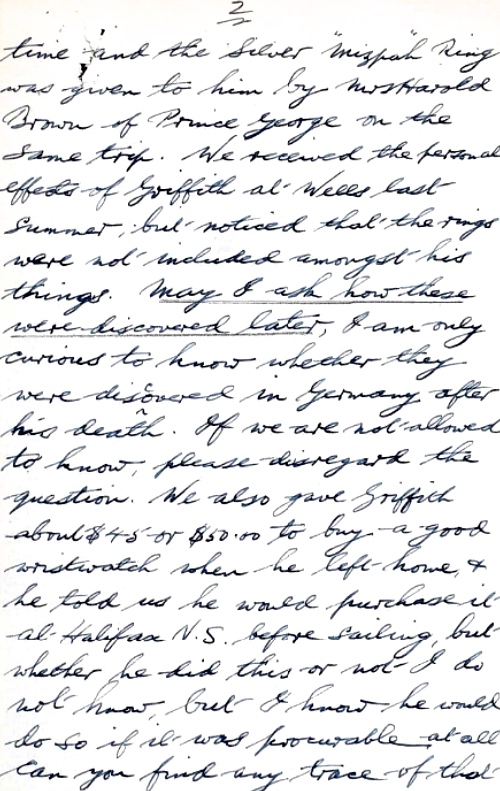 2
time and the Silver "Mizpah" Ring
was given to him by Mrs Harold
Brown of Prince George on the
same trip. We received the personal
effects of Griffith at Wells last
Summer, but noticed that the rings
were not included amongst his
things. May I ask how these
were discovered later, I am only
curious to know whether they
were disovered in Germany after
his death. If we are not allowed
to know, please disregard the
question. We also gave Griffith
about $45 or $50.00 to buy a good
wristwatch when he left home, &
he told us he would purchase it
at Halifax N.S. before sailing, but
whether he did this or not I do
not know, but I know he would
do so if it was procurable at all
Can you find any trace of that